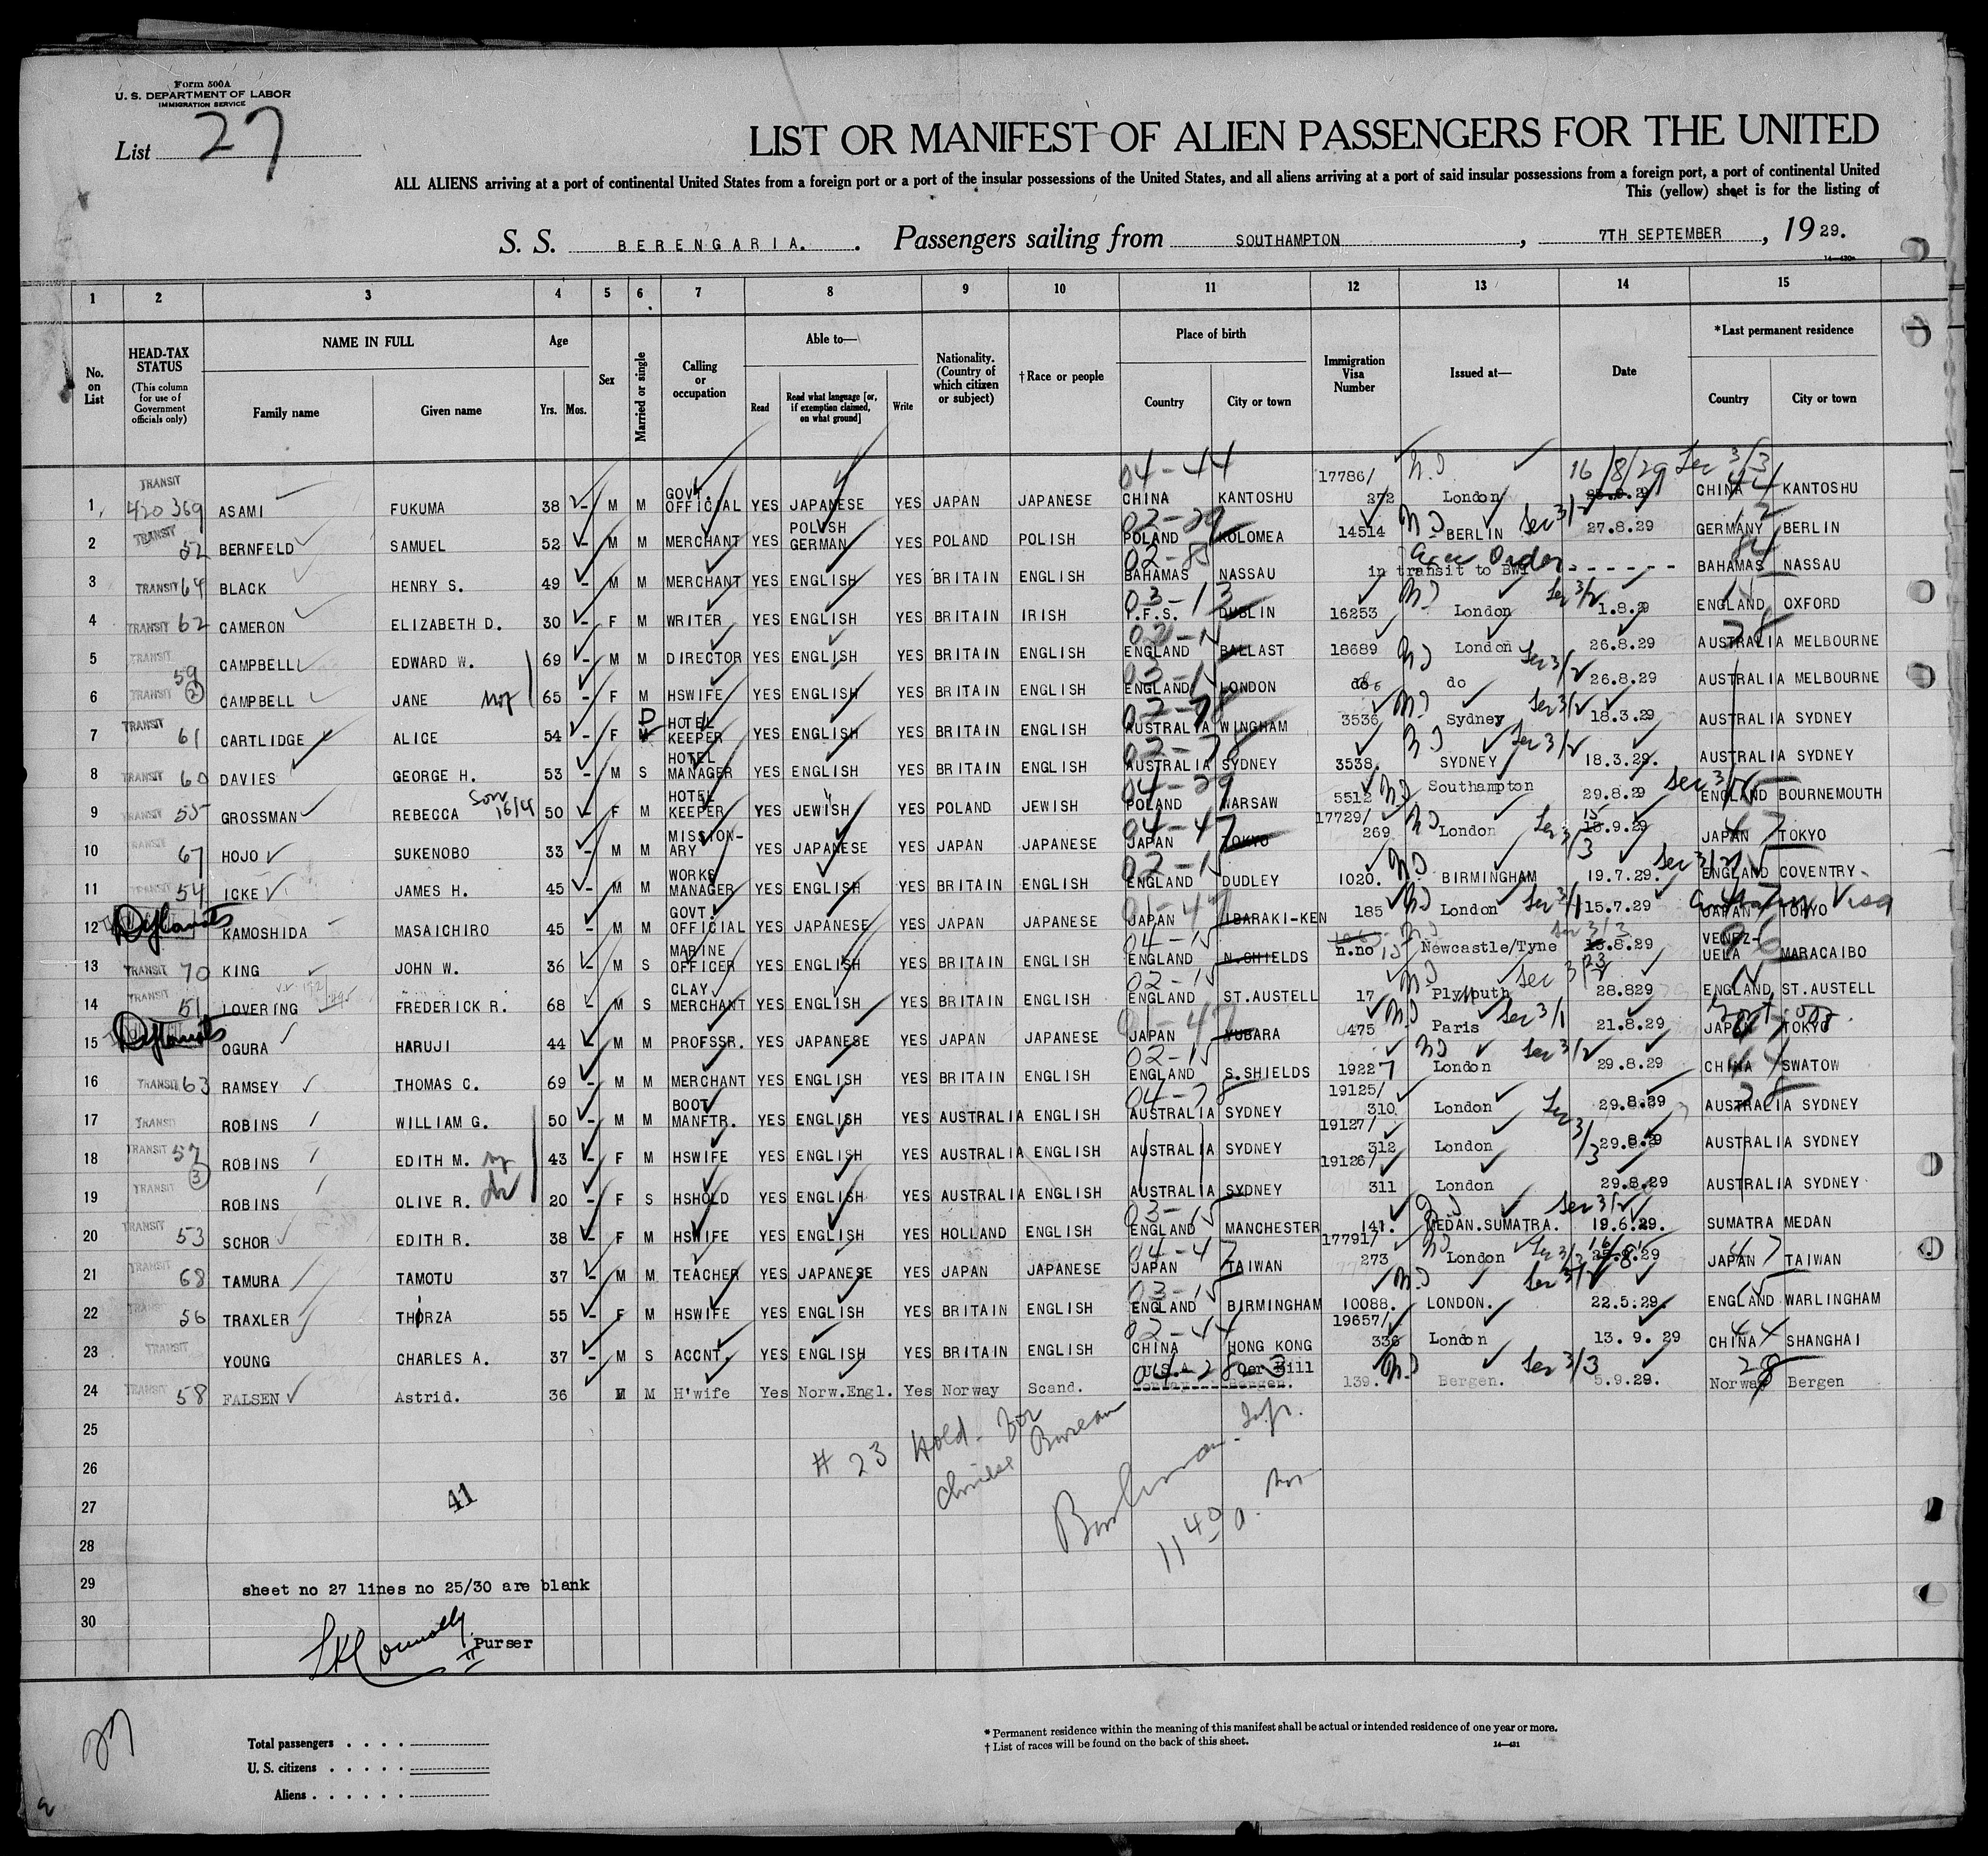 Form 500A
U. S. DEPARTMENT OF LABOR
IMMIGRATION SERVICE
List 27
LIST OR MANIFEST OF ALIEN PASSENGERS FOR THE UNITED
ALL ALIENS arriving at a port of continental United States from a foreign port or a port of the insular possessions of the United States, and all aliens arriving at a port of said insular possessions from a foreign port, a port of continental United
This (yellow) sheet is for the listing of
S. S. BERENGARIA. Passengers sailing from SOUTHAMPTON, 7TH SEPTEMBER, 19 29.
1 2 3 4 5 6 7 8 9 10 11 12 13 14 15
No. on List
HEAD-TAX STATUS (This column for use of Government officials only)
NAME IN FULL Family name Given name
Age Yrs. Mos.
Sex
Married or single
Calling or occupation
Able to— Read Read what language [or, if exemption claimed, on what ground] Write
Nationality. (Country of which citizen or subject)
†Race or people
Place of birth Country City or town
Immigration Visa Number
Issued at—
Date
*Last permanent residence Country City or town
1 TRANSIT 420 369 ASAMI FUKUMA 38 - M M GOVT. OFFICIAL YES JAPANESE YES JAPAN JAPANESE 04-44 CHINA KANTOSHU 17786/272 London 16/8/29 Sec 3/3 CHINA 44 KANTOSHU
2 TRANSIT 52 BERNFELD SAMUEL 52 - M M MERCHANT YES POLISH GERMAN YES POLAND POLISH 02-29 POLAND KOLOMEA 14514 BERLIN Sec 3/2 27.8.29 GERMANY BERLIN
3 TRANSIT 64 BLACK HENRY S. 49 - M M MERCHANT YES ENGLISH YES BRITAIN ENGLISH 02-85 BAHAMAS NASSAU in transit to BWI Order BAHAMAS 84 NASSAU
4 TRANSIT 62 CAMERON ELIZABETH D. 30 - F M WRITER YES ENGLISH YES BRITAIN IRISH 03-13 I.F.S. DUBLIN 16253 London Sec 3/2 1.8.29 ENGLAND OXFORD
5 TRANSIT 59 CAMPBELL EDWARD W. 69 - M M DIRECTOR YES ENGLISH YES BRITAIN ENGLISH 02-15 ENGLAND BALLAST 18689 London Sec 3/2 26.8.29 AUSTRALIA 78 MELBOURNE
6 TRANSIT 2 CAMPBELL JANE 65 - F M HSWIFE YES ENGLISH YES BRITAIN ENGLISH 03-15 ENGLAND LONDON do do 26.8.29 AUSTRALIA MELBOURNE
7 TRANSIT 61 CARTLIDGE ALICE 54 - F D HOTEL KEEPER YES ENGLISH YES BRITAIN ENGLISH 02-78 AUSTRALIA WINGHAM 3536 Sydney Sec 3/2 18.3.29 AUSTRALIA SYDNEY
8 TRANSIT 60 DAVIES GEORGE H. 53 - M S HOTEL MANAGER YES ENGLISH YES BRITAIN ENGLISH 02-78 AUSTRALIA SYDNEY 3538. SYDNEY Sec 3/2 18.3.29. AUSTRALIA SYDNEY
9 TRANSIT 55 GROSSMAN REBECCA 50 - F M HOTEL KEEPER YES JEWISH YES POLAND JEWISH 04-29 POLAND WARSAW 5512 Southampton 29.8.29 Sec 3/2 ENGLAND BOURNEMOUTH
10 TRANSIT 67 HOJO SUKENOBO 33 - M M MISSION-ARY YES JAPANESE YES JAPAN JAPANESE 04-47 JAPAN TOKYO 17729/269 London Sec 3/3 15 .9.29 JAPAN 47 TOKYO
11 TRANSIT 54 ICKE JAMES H. 45 - M M WORKS MANAGER YES ENGLISH YES BRITAIN ENGLISH 02-15 ENGLAND DUDLEY 1020. BIRMINGHAM 19.7.29. Sec 3/2 ENGLAND COVENTRY
12 KAMOSHIDA MASAICHIRO 45 - M M GOVT. OFFICIAL YES JAPANESE YES JAPAN JAPANESE 01-47 JAPAN IBARAKI-KEN 185 London Sec 3/1 15.7.29 JAPAN TOKYO Visa
13 TRANSIT 70 KING JOHN W. 36 - M S MARINE OFFICER YES ENGLISH YES BRITAIN ENGLISH 04-15 ENGLAND N.SHIELDS n.no 15 Newcastle/Tyne Sec 3/3 .8.29 VENEZ-UELA 96 MARACAIBO
14 TRANSIT 51 LOVERING FREDERICK R. 68 - M S CLAY MERCHANT YES ENGLISH YES BRITAIN ENGLISH 02-15 ENGLAND ST.AUSTELL 17 Plymouth Sec 3/2 28.829 ENGLAND ST.AUSTELL
15 OGURA HARUJI 44 - M M PROFSSR. YES JAPANESE YES JAPAN JAPANESE 01-47 JAPAN YUBARA 475 Paris Sec 3/1 21.8.29 JAPAN TOKYO
16 TRANSIT 63 RAMSEY THOMAS C. 69 - M M MERCHANT YES ENGLISH YES BRITAIN ENGLISH 02-15 ENGLAND S.SHIELDS 19227 London Sec 3/2 29.8.29 CHINA 44 SWATOW
17 TRANSIT ROBINS WILLIAM G. 50 - M M BOOT MANFTR. YES ENGLISH YES AUSTRALIA ENGLISH 04-78 AUSTRALIA SYDNEY 19125/310 London Sec 3/3 29.8.29 AUSTRALIA 78 SYDNEY
18 TRANSIT 57 3 ROBINS EDITH M. 43 - F M HSWIFE YES ENGLISH YES AUSTRALIA ENGLISH AUSTRALIA SYDNEY 19127/312 London 29.8.29 AUSTRALIA SYDNEY
19 TRANSIT ROBINS OLIVE R. 20 - F S HSHOLD YES ENGLISH YES AUSTRALIA ENGLISH AUSTRALIA SYDNEY 19126/311 London 29.8.29 AUSTRALIA SYDNEY
20 TRANSIT 53 SCHOR EDITH R. 38 - F M HSWIFE YES ENGLISH YES HOLLAND ENGLISH 03-15 ENGLAND MANCHESTER 141. MEDAN.SUMATRA. Sec 3/2 19.6.29. SUMATRA MEDAN
21 TRANSIT 68 TAMURA TAMOTU 37 - M M TEACHER YES JAPANESE YES JAPAN JAPANESE 04-47 JAPAN TAIWAN 17791/273 London Sec 3/3 16/8 29 JAPAN 47 TAIWAN
22 TRANSIT 56 TRAXLER THIRZA 55 - F M HSWIFE YES ENGLISH YES BRITAIN ENGLISH 03-15 ENGLAND BIRMINGHAM 10088. LONDON. Sec 3/2 22.5.29. ENGLAND 15 WARLINGHAM
23 TRANSIT YOUNG CHARLES A. 37 - M S ACCNT. YES ENGLISH YES BRITAIN ENGLISH 02-44 CHINA HONG KONG 19657/336 London 13. 9. 29 CHINA 44 SHANGHAI
24 TRANSIT 58 FALSEN Astrid. 36 M H'wife Yes Norw.Engl. Yes Norway Scand. Norway Bergen. 139. Bergen. Sec 3/3 5.9.29. Norway 28 Bergen
25
# 23 Hold for
Chinese Bureau
26
27 41
28 11 40 a.
29 sheet no 27 lines no 25/30 are blank
30
Purser
27
Total passengers . . . .
U. S. citizens . . . . .
Aliens . . . . . .
* Permanent residence within the meaning of this manifest shall be actual or intended residence of one year or more.
† List of races will be found on the back of this sheet.
14—431